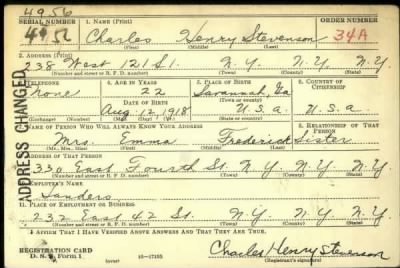 4956
SERIAL NUMBER 1. NAME (Print) ORDER NUMBER
4956 Charles Henry Stevenson 34A
(First) (Middle) (Last)
2. ADDRESS (Print)
238 West 121 St. N.Y. N.Y. N.Y.
(Number and street or R. F. D. number) (Town) (County) (State)
3. TELEPHONE 4. AGE IN YEARS 5. PLACE OF BIRTH 6. COUNTRY OF CITIZENSHIP
None 22 Savannah, Ga
DATE OF BIRTH (Town or county)
Aug. 12, 1918 U.S.a. U.S.a.
(Exchange) (Number) (Mo.) (Day) (Yr.) (State or country)
7. NAME OF PERSON WHO WILL ALWAYS KNOW YOUR ADDRESS 8. RELATIONSHIP OF THAT PERSON
Mrs. Emma Frederick Sister
(Mr., Mrs., Miss) (First) (Middle) (Last)
9. ADDRESS OF THAT PERSON
330 East Fourth St. N.Y. N.Y. N.Y.
(Number and street or R. F. D. number) (Town) (County) (State)
10. EMPLOYER'S NAME
Sanders
11. PLACE OF EMPLOYMENT OR BUSINESS
232 East 42 St. N.Y. N.Y. N.Y.
(Number and street or R. F. D. number) (Town) (County) (State)
I AFFIRM THAT I HAVE VERIFIED ABOVE ANSWERS AND THAT THEY ARE TRUE.
REGISTRATION CARD
D. S. S. Form 1 16—17105 Charles Henry Stevenson
(Registrant's signature)
ADDRESS CHANGED